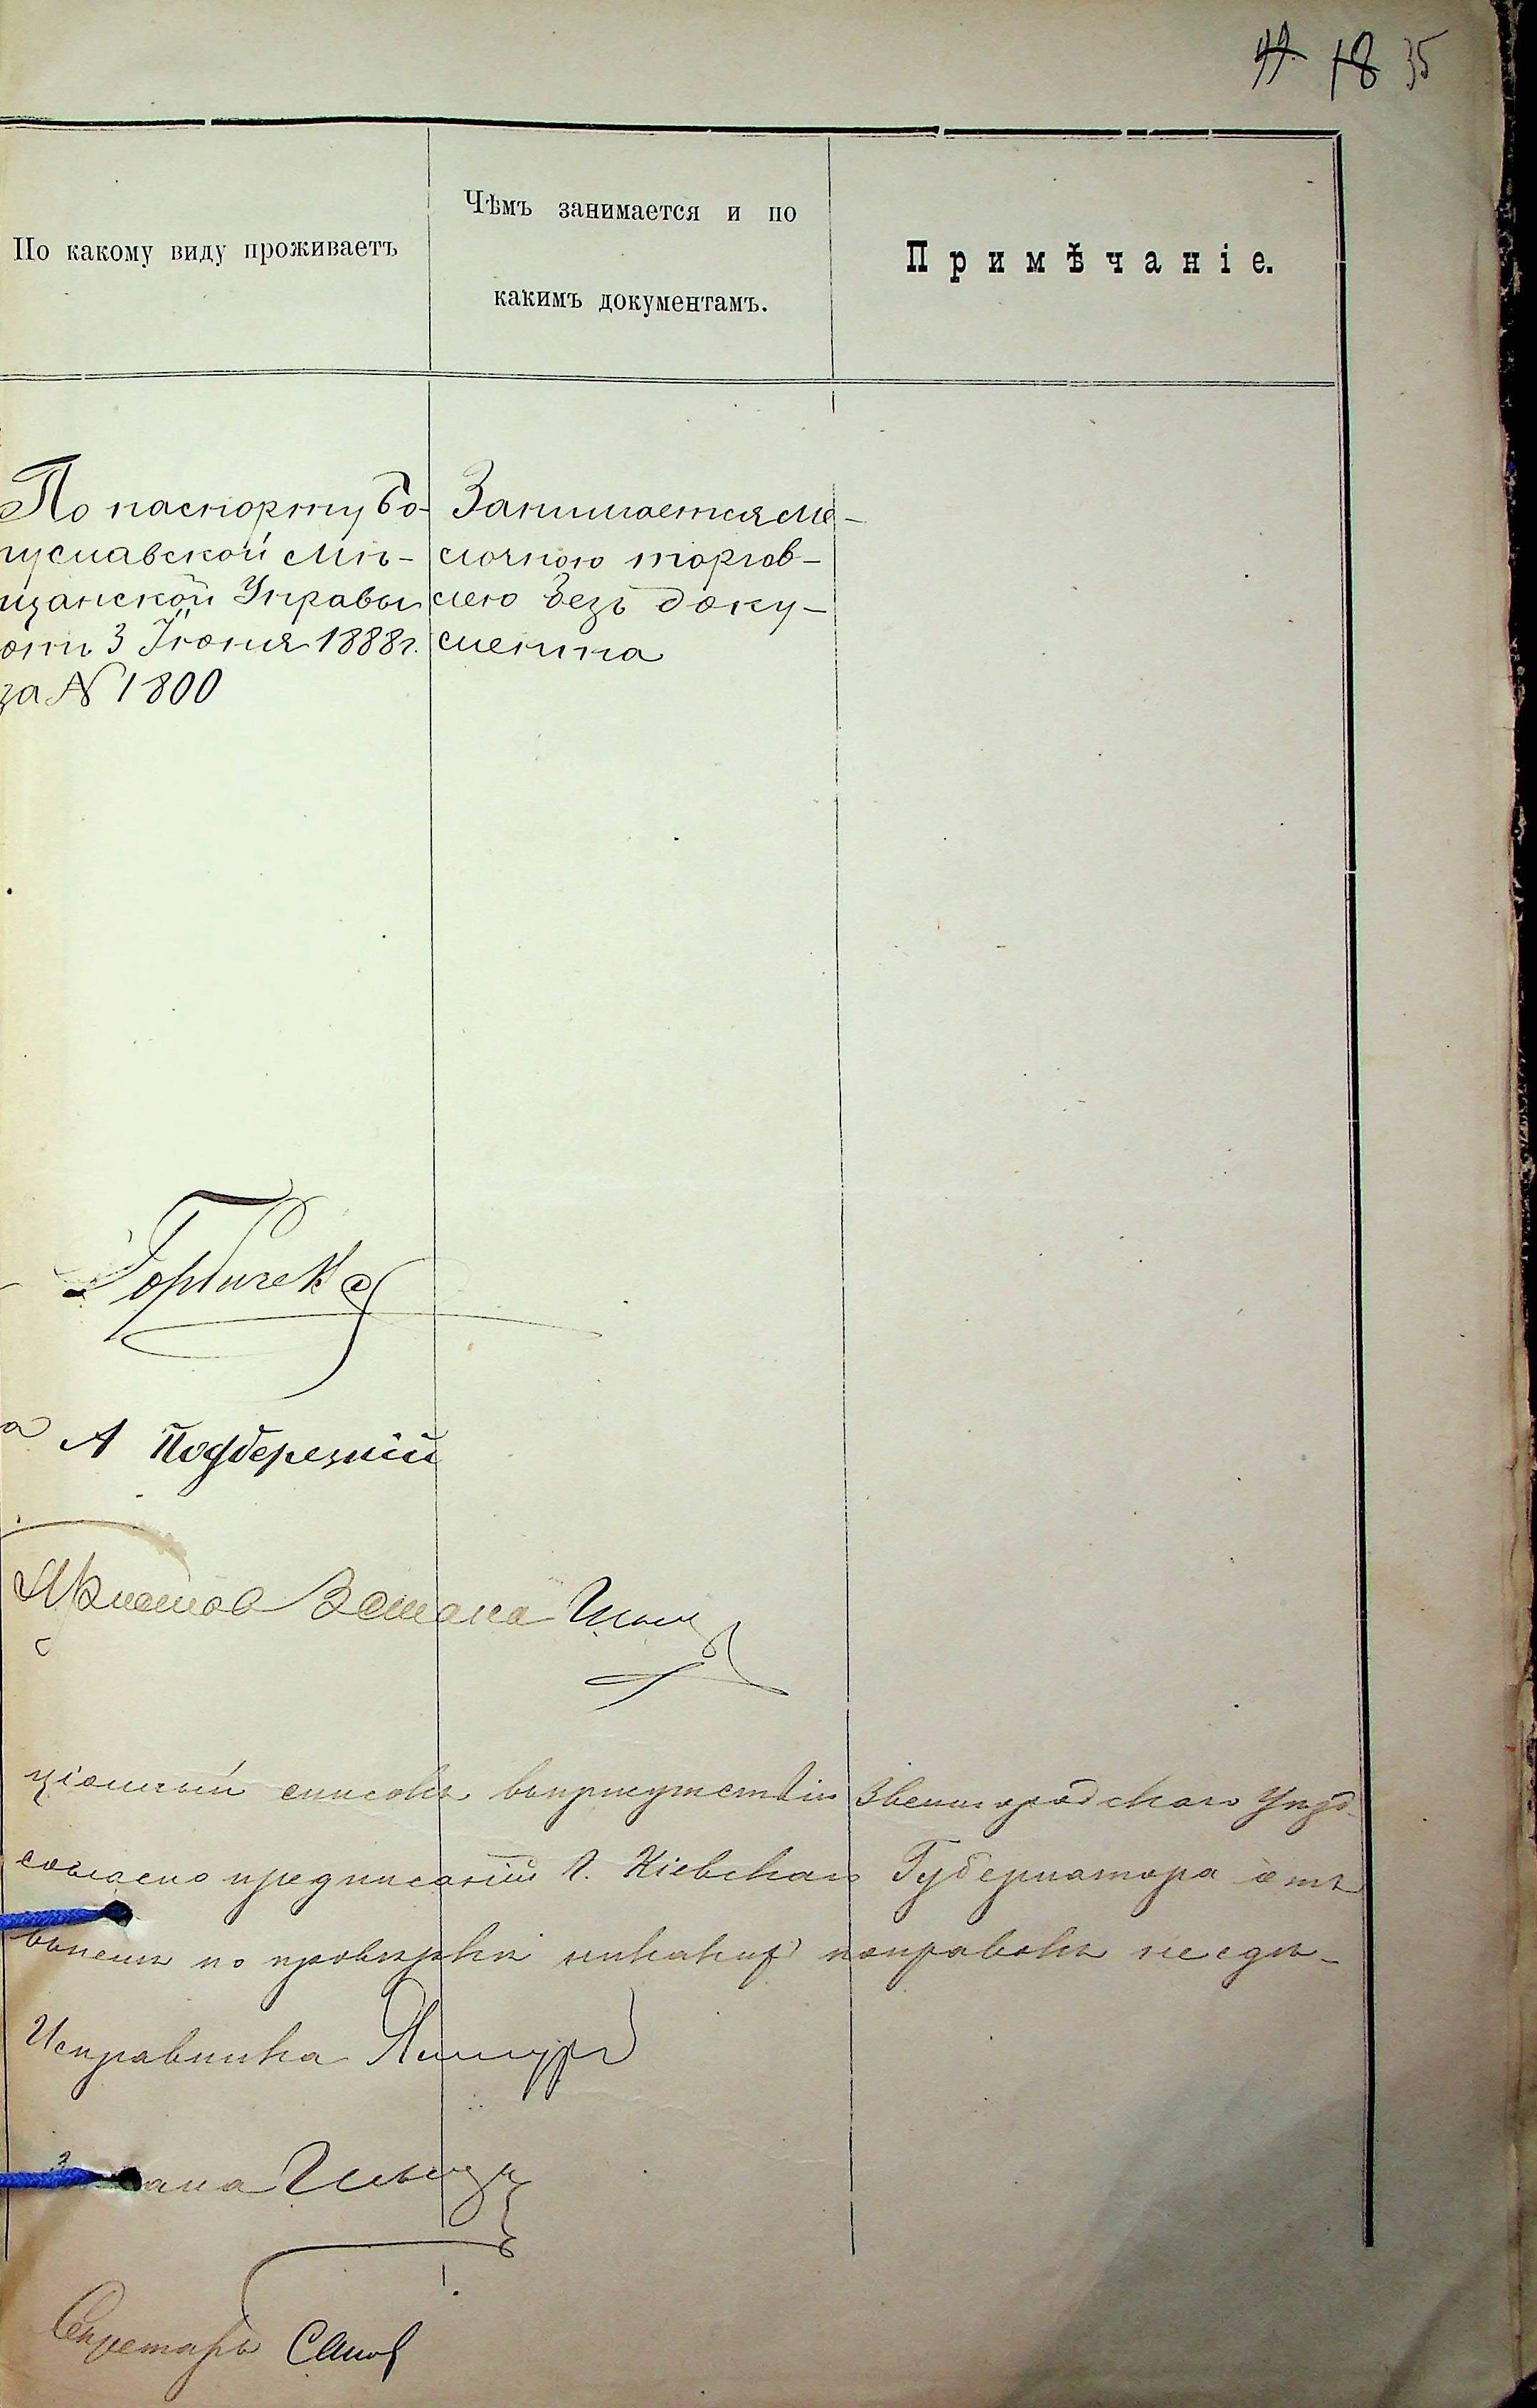 18 35
По какому виду проживаетъ
Чѣмъ занимается и по
какимъ документамъ.
Примѣчаніе.
По паспорту Бо-
гуславской Мѣ-
щанской Управы
отъ 3 Іюня 1888г.
за № 1800
Занимается ме-
лочною торгов-
лею безъ доку-
мента
А Подберезкій
ціонный списокъ въ присутствіи Звенигородскаго Уѣзд-
согласно предписанію Г. Кіевскаго Губернатора отъ
по провѣркѣ никакихъ поправокъ не сдѣ-
Исправника
Секретарь